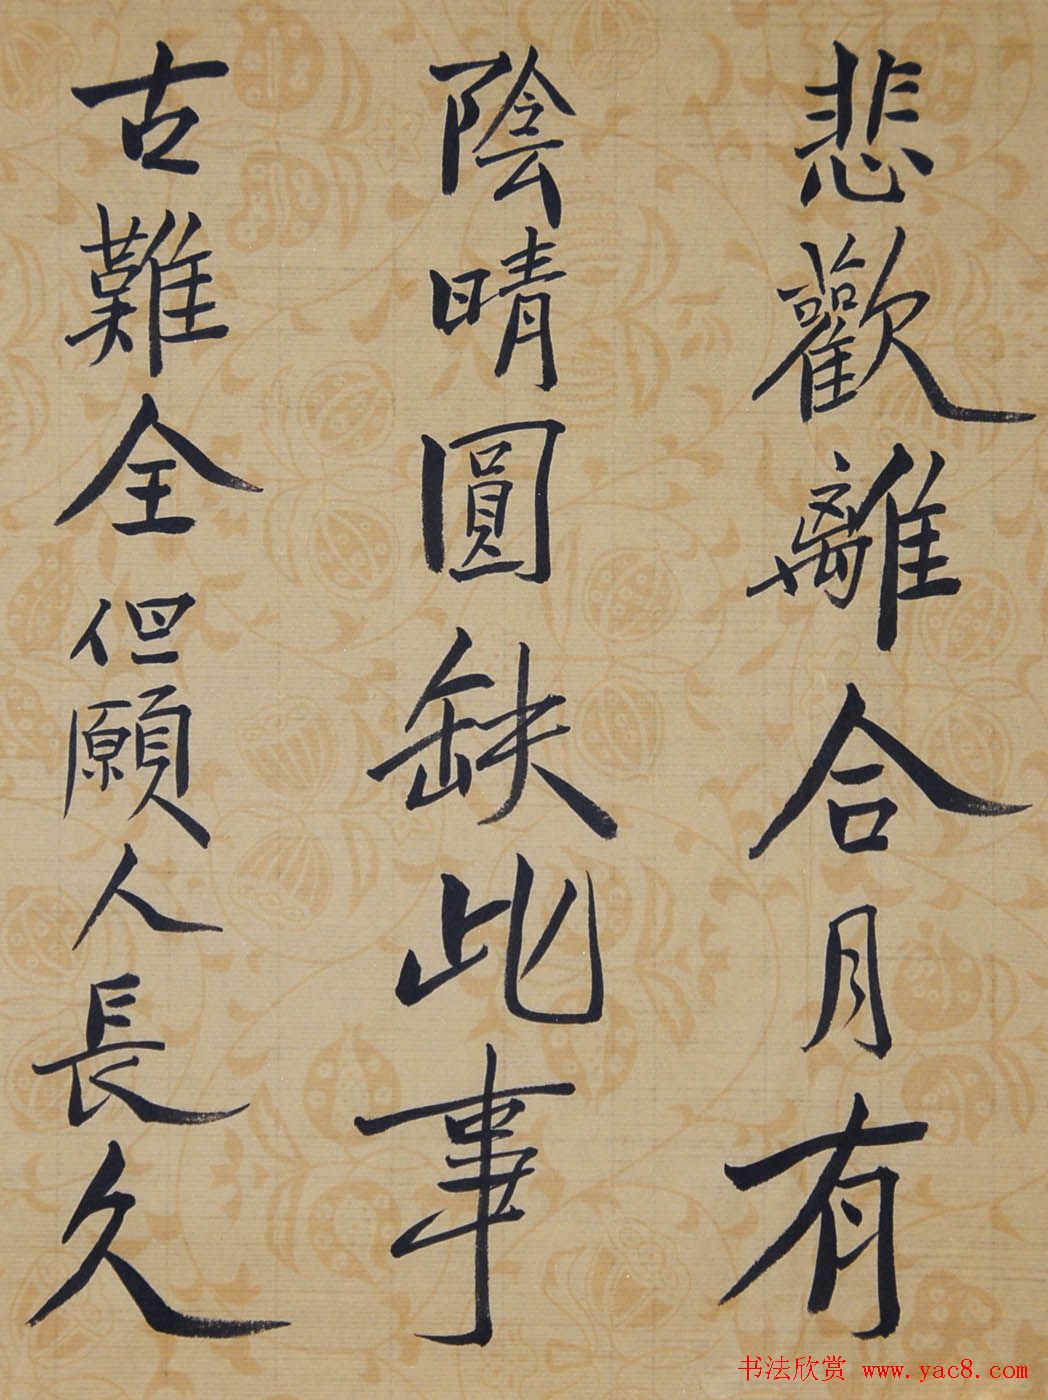 悲歡離合月有
陰晴圓缺此事
古難全但願人長久
书法欣赏 www.yac8.com